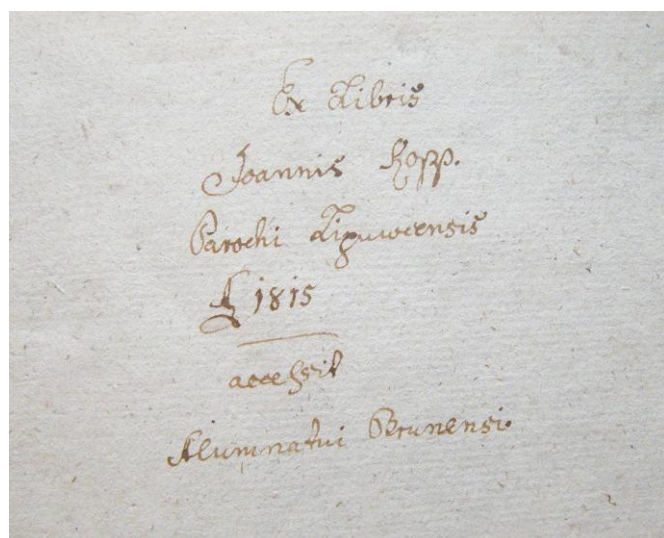 Ex Libris
Joannis Hopp.
Parochi Lipuwcensis
A 1815
accessit
Alumnatui Brunensi.